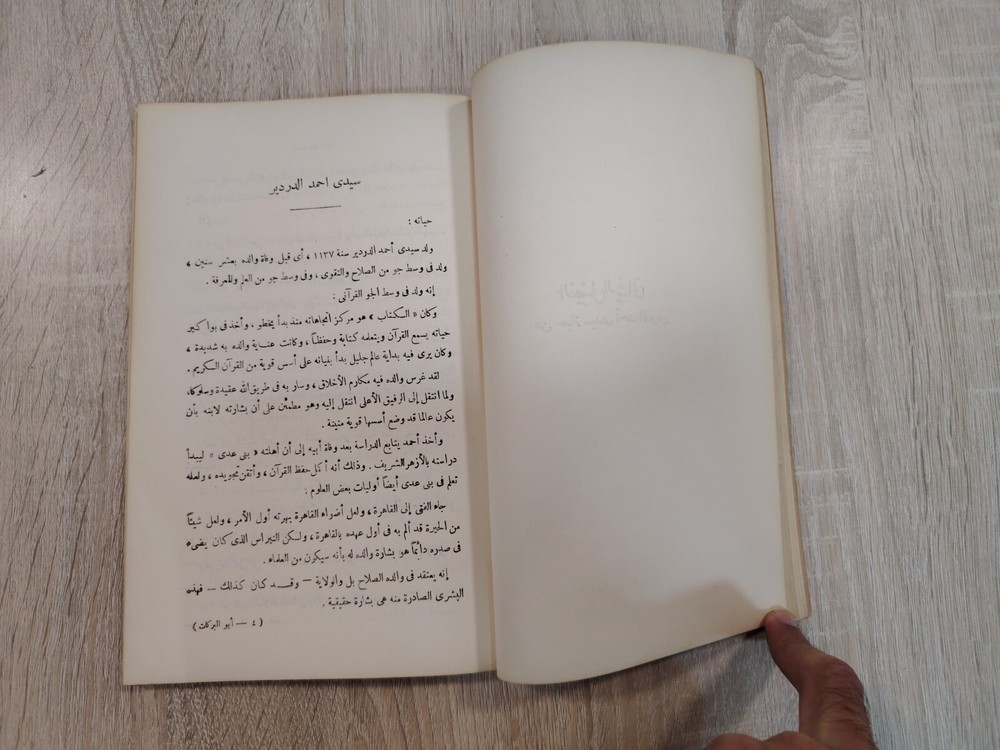 سيدى أحمد الدردير
حياته :
ولد سيدى أحمد الدردير سنة ١١٢٧ ، أى قبل وفاة والده بعشر سنين ،
ولد فى وسط جو من الصلاح والتقوى ، وفى وسط جو من العلم والمعرفة .
إنه ولد فى وسط الجو القرآنى :
وكان « الكتاب » هو مركز اتجاهاته منذ بدأ يخطو ، وأخذ فى بواكير
حياته يسمع القرآن ويتعلمه كتابة وحفظاً ، وكانت عناية والده به شديدة ،
وكان يرى فيه بداية عالم جليل بدأ بنيانه على أسس قوية من القرآن الكريم .
لقد غرس والده فيه مكارم الأخلاق ، وسار به فى طريق الله عقيدة وسلوكا،
ولما انتقل إلى الرفيق الأعلى انتقل إليه وهو مطمئن على أن بشارته لابنه بأن
يكون عالما قد وضع أسسها قوية متينة .
وأخذ أحمد يتابع الدراسة بعد وفاة أبيه إلى أن أهلته « بنى عدى » ليبدأ
دراسته بالأزهر الشريف . وذلك أنه أكمل حفظ القرآن ، وأتقن تجويده ، ولعله
تعلم فى بنى عدى أيضاً أوليات بعض العلوم :
جاء الفتى إلى القاهرة ، ولعل أضواء القاهرة بهرته أول الأمر ، ولعل شيئاً
من الحيرة قد ألم به فى أول عهده بالقاهرة ، ولكن النبراس الذى كان يضىء
فى صدره دائماً هو بشارة والده له بأنه سيكون من العلماء .
إنه يعتقد فى والده الصلاح بل والولاية — وقد كان كذلك — فهذه
البشرى الصادرة منه هى بشارة حقيقية .
( ٤ — أبو البركات )